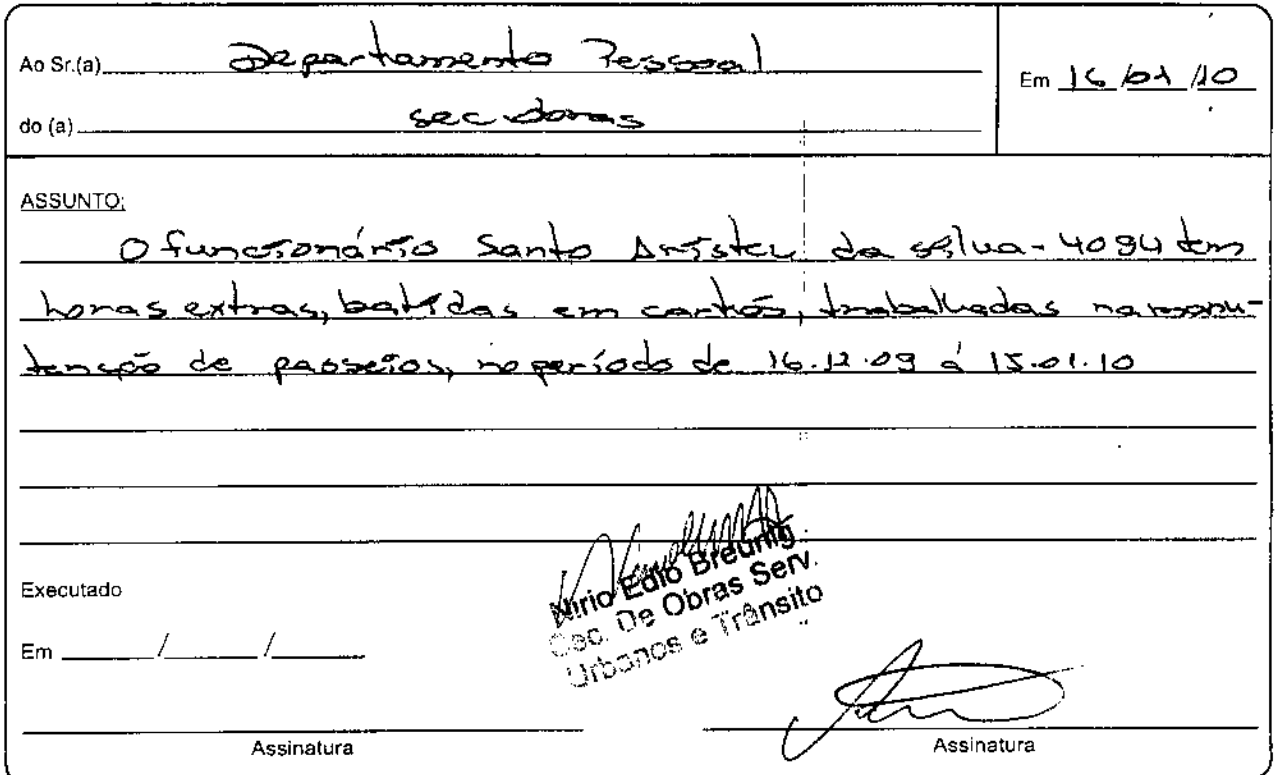 Ao Sr.(a) Departamento Pessoal
Em 16/01/10
do (a) sec
ASSUNTO:
O funcionário Santo Aristeu da silva - 4094 tem
horas extras, batidas em cartão, trabalhadas na manu-
tenção de passeios, no período de 16.12.09 á 15.01.10
Nirio Edio Breunig
Sec. De Obras Serv.
Urbanos e Trânsito
Executado
Em / /
Assinatura
Assinatura